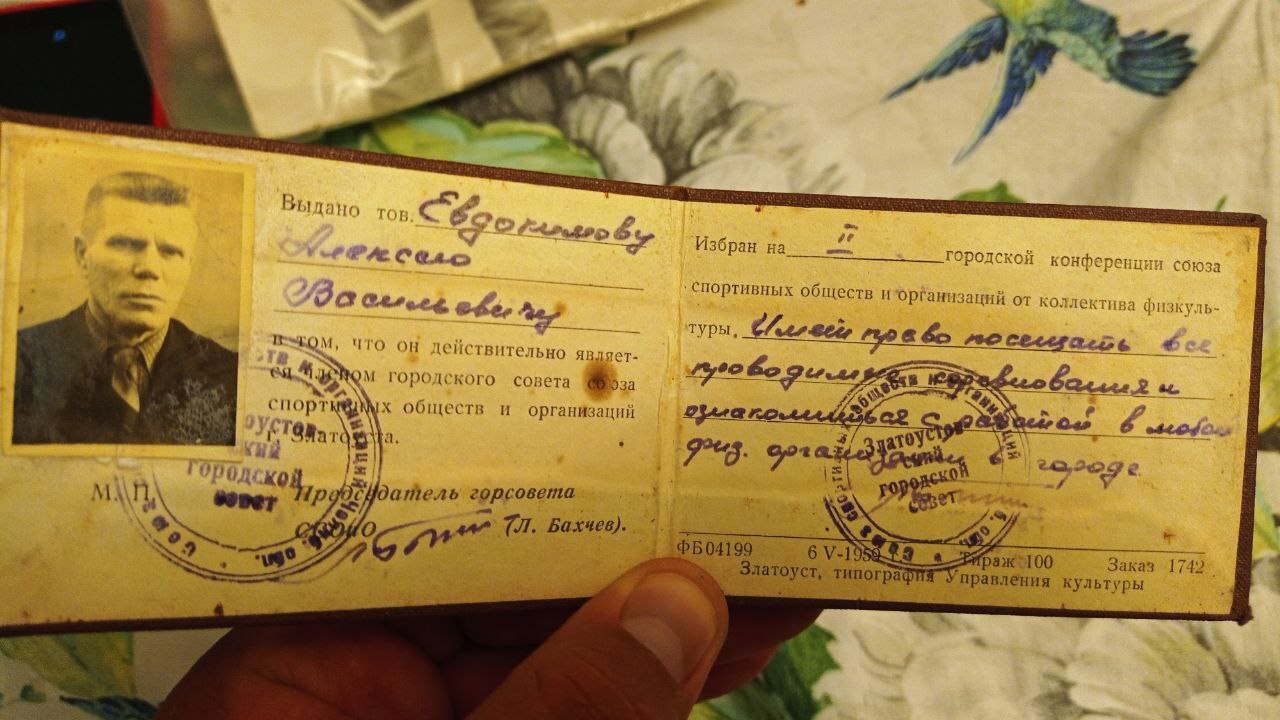 Выдано тов. Евдокимову
Алексею
Васильевичу
в том, что он действительно являет-
ся членом городского совета союза
спортивных обществ и организаций
г. Златоуста.
М. П.
Председатель горсовета
СПОиО
(Л. Бахчев).
Союз спортивных обществ и организаций Челяб. обл.
Златоустовский
городской
совет
Избран на II городской конференции союза
спортивных обществ и организаций от коллектива физкуль-
туры. Имеет право посещать все
проводимые соревнования и
ознакомиться с работой в любой
физ. организации в городе
Союз спортивных обществ и организаций
Златоустов-
ский
городской
совет
ФБ04199 6 V-1959 г. Тираж 100 Заказ 1742
Златоуст, типография Управления культуры